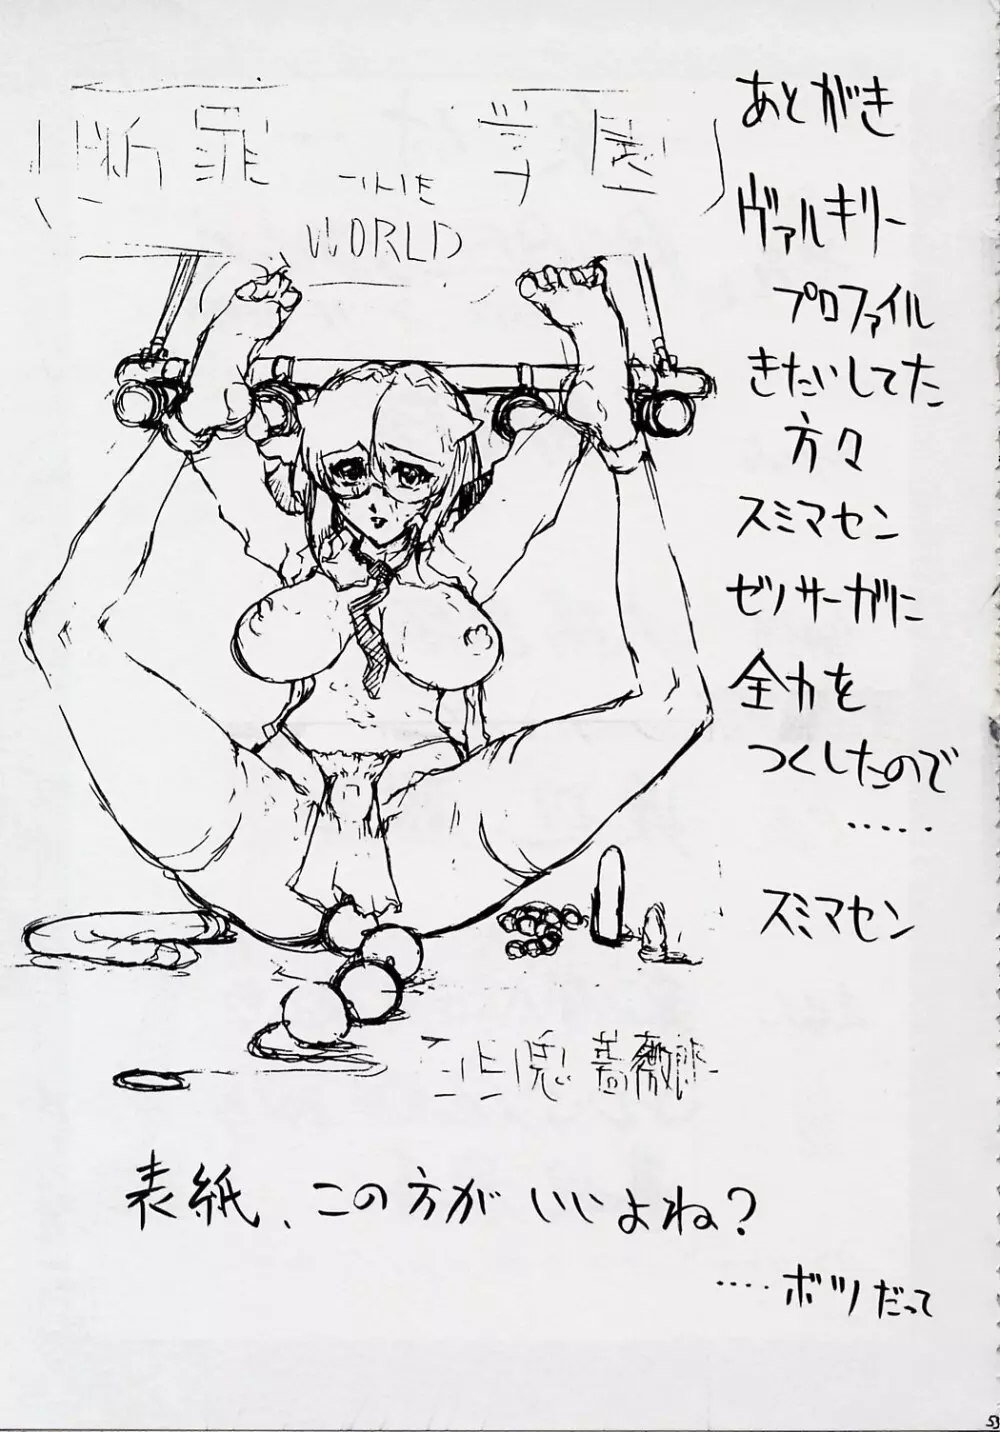 断罪学園
THE
WORLD
あとがき
ヴァルキリー
プロファイル
きたいしてた
方々
スミマセン
ゼノサーガに
全力を
つくしたので
.....
スミマセン
表紙、この方がいいよね?
....ボツだって
53